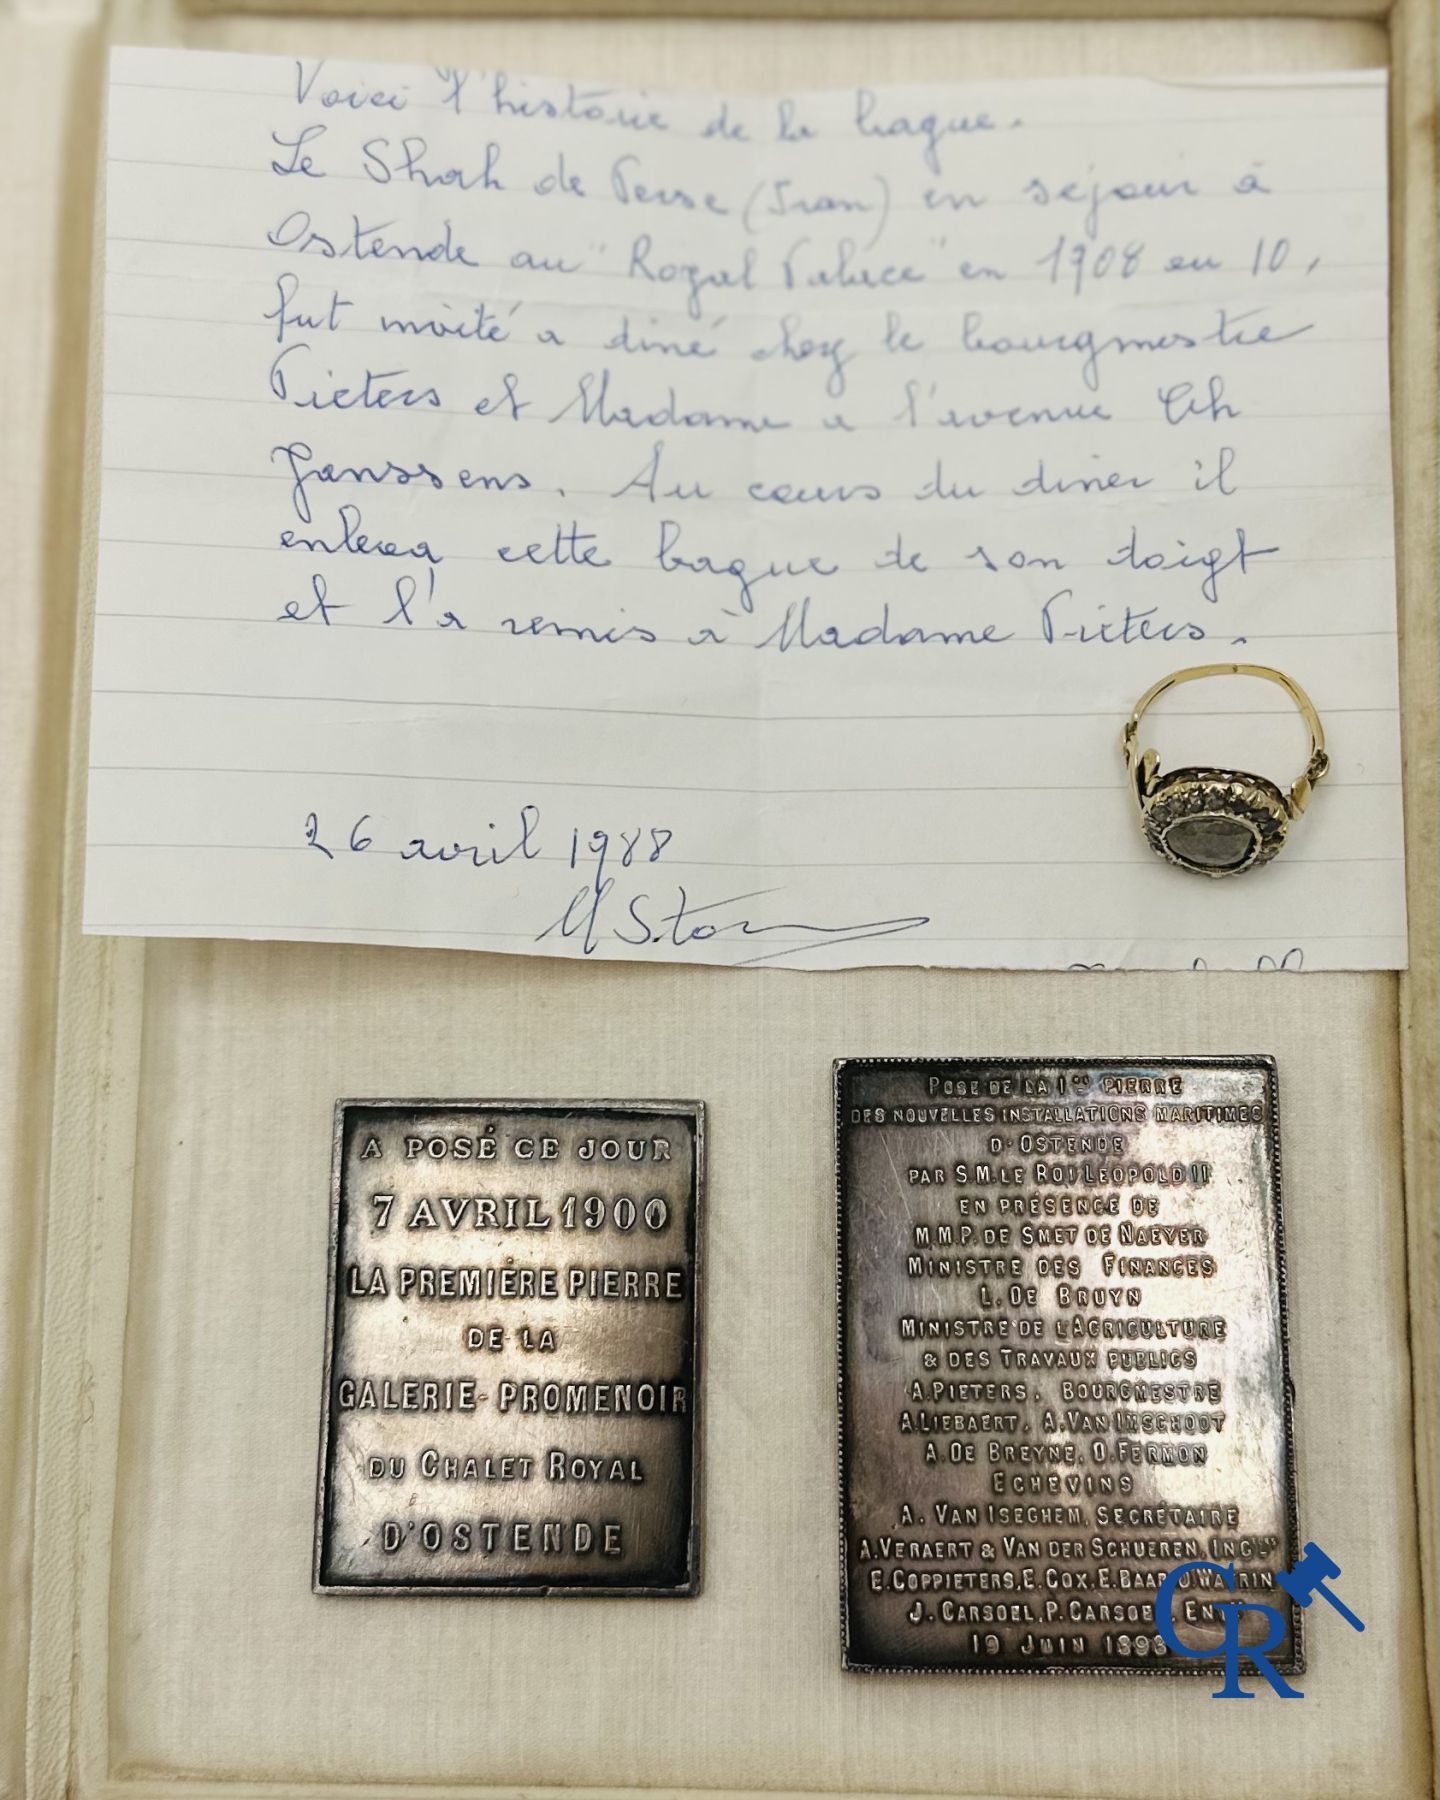 Voici l'histoire de la bague.
Le Shah de Perse (Iran) en séjour à
Ostende au "Royal Palace" en 1908 ou 10,
fut invité a diné chez le bourgmestre
Pieters et Madame a l'avenue Ch
Janssens. Au cours du diner il
enleva cette bague de son doigt
et l'a remis à Madame Pieters.
26 avril 1988
A POSÉ CE JOUR
7 AVRIL 1900
LA PREMIÈRE PIERRE
DE LA
GALERIE-PROMENOIR
DU CHALET ROYAL
D'OSTENDE
POSE DE LA 1RE PIERRE
DES NOUVELLES INSTALLATIONS MARITIMES
D'OSTENDE
PAR S.M. LE ROI LEOPOLD II
EN PRÉSENCE DE
M.M.P. DE SMET DE NAEYER
MINISTRE DES FINANCES
L. DE BRUYN
MINISTRE DE L'AGRICULTURE
& DES TRAVAUX PUBLICS
A. PIETERS, BOURGMESTRE
A. LIEBAERT, A. VAN IMSCHOOT
A. DE BREYNE, O. FERMON
ECHEVINS
A. VAN ISEGHEM, SECRÉTAIRE
A. VERAERT & VAN DER SCHUEREN, INGRS
E. COPPIETERS, E. COX, E. WATRIN
J. CARSOEL, P. CARSOEL
19 JUIN
GR